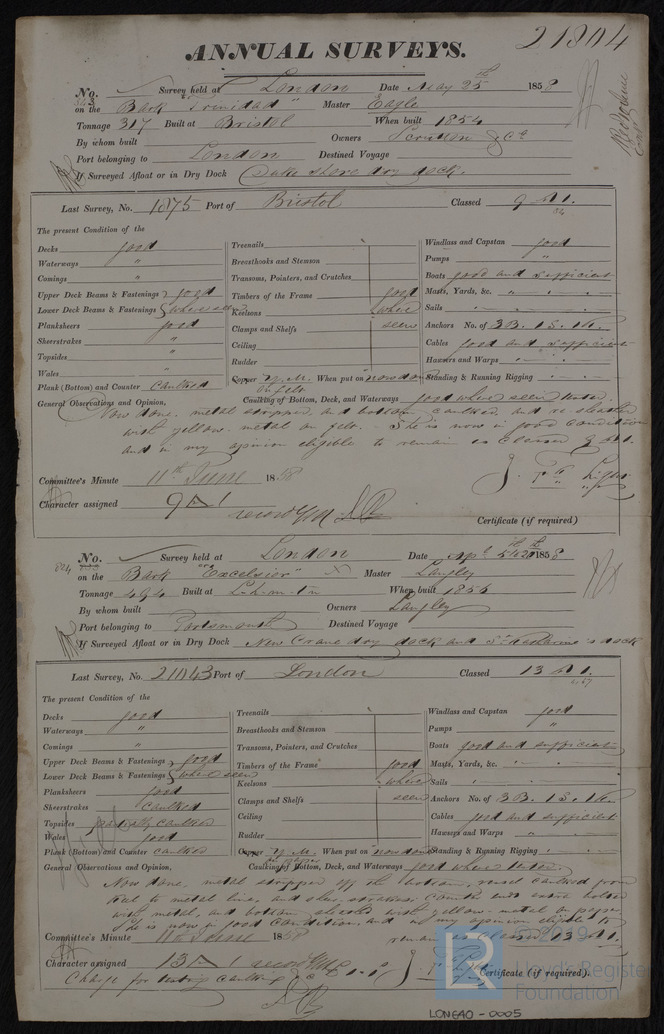 21804
ANNUAL SURVEYS.
No. 343 Survey held at London Date May 25th 1858
on the Bark "Trinidad" Master Eagle
Tonnage 317 Built at Bristol When built 1854
By whom built Owners Scrutton & Co
Port belonging to London Destined Voyage
If Surveyed Afloat or in Dry Dock dry dock.
Last Survey, No. 1875 Port of Bristol Classed 9 A 1.
The present Condition of the
Decks good
Waterways "
Comings "
Upper Deck Beams & Fastenings good
Lower Deck Beams & Fastenings where seen
Planksheers good
Sheerstrakes "
Topsides "
Wales "
Plank (Bottom) and Counter Caulked
Treenails
Breasthooks and Stemson
Transoms, Pointers, and Crutches
Timbers of the Frame good
Keelsons where
Clamps and Shelfs seen
Ceiling
Rudder
Copper Y.M. When put on now done
on felt
Windlass and Capstan good
Pumps "
Boats good and sufficient
Masts, Yards, &c. " "
Sails " "
Anchors No. of 3B. 1S. 1K.
Cables good and sufficient
Hawsers and Warps " "
Standing & Running Rigging " "
General Observations and Opinion, Caulking of Bottom, Deck, and Waterways good where seen
Now done. metal stripped and bottom caulked, and re sheathed
with yellow metal on felt. - She is now in good condition
and in my opinion eligible to remain as Classed 9 A 1.
Committee's Minute 11th June 1858
Character assigned 9 A 1
Certificate (if required)
No. 824 Survey held at London Date Apl 1858
on the Bark "Excelsior" Master Langley
Tonnage 494 Built at When built 1856
By whom built Owners Langley
Port belonging to Portsmouth Destined Voyage
If Surveyed Afloat or in Dry Dock New Crane dry dock and St Katharine's dock
Last Survey, No. 21043 Port of London Classed 13 A 1.
The present Condition of the
Decks good
Waterways "
Comings "
Upper Deck Beams & Fastenings good
Lower Deck Beams & Fastenings where seen
Planksheers good
Sheerstrakes Caulked
Topsides partially caulked
Wales good
Plank (Bottom) and Counter caulked
Treenails
Breasthooks and Stemson
Transoms, Pointers, and Crutches
Timbers of the Frame good
Keelsons where
Clamps and Shelfs seen
Ceiling
Rudder
Copper Y.M. When put on now done
Windlass and Capstan good
Pumps "
Boats good and sufficient
Masts, Yards, &c. " "
Sails " "
Anchors No. of 3B. 1S. 1K.
Cables good and sufficient
Hawsers and Warps " "
Standing & Running Rigging " "
General Observations and Opinion, Caulking of Bottom, Deck, and Waterways good where tested
Now done, metal stripped off the bottom, vessel caulked from
keel to metal line, and
with metal, and bottom sheathed with yellow metal on paper.
She is now in good condition, and in my opinion eligible to
remain as Classed 13 A 1.
Committee's Minute 11th June 1858
Character assigned 13 A 1
Certificate (if required).
Charge for testing caulking &c
© 2019
Lloyd's Register
Foundation
LON640-0005